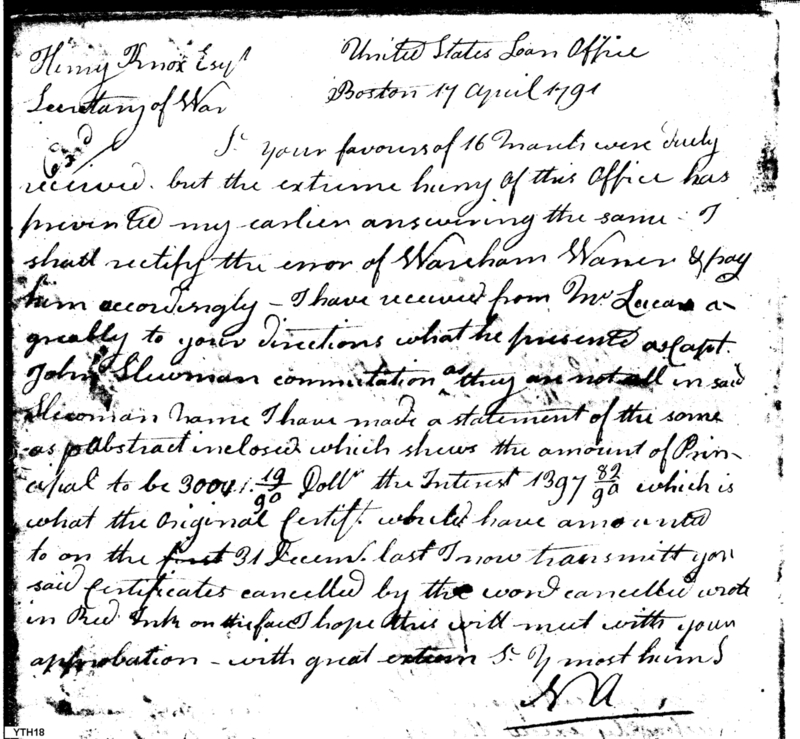 Henry Knox Esqr
Secretary of War
United States Loan Office
Boston 17 April 1791
Sr your favours of 16 March were duely
received. but the extreme hurry of this Office has
prevented my earlier answering the same - I
shall rectify the error of Wareham Warner & pay
him accordingly - I have received from Mr Lucas a-
greably to your directions what he presented as Capt.
John Slewman commutation as they are not all in said
Slewman name I have made a statement of the same
as p Abstract inclosed which shews the amount of Prin-
cipal to be 3000 19/90 Dollrs the Interest 1397 82/90 which is
what the Original Certift. would have amounted
to on the first 31 Decemr last I now transmitt you
said Certificates cancelled by the word cancelled wrote
in Red Ink on the face I hope this will meet with your
approbation - with great esteem Sr Y most hum S
N A
YTH18